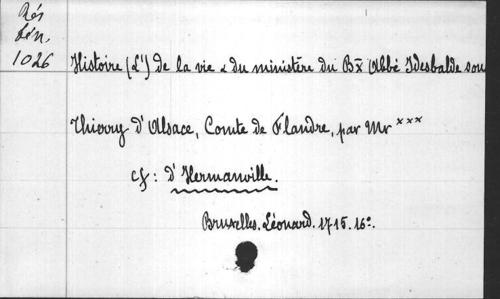 Rés
Gén.
1026
Histoire (L') de la vie & du ministère du Bx Abbé Idesbalde sous
Thierry d'Alsace, Comte de Flandre, par Mr xxx
cf: d'Hermanville.
Bruxelles. Léonard. 1715. 16º.